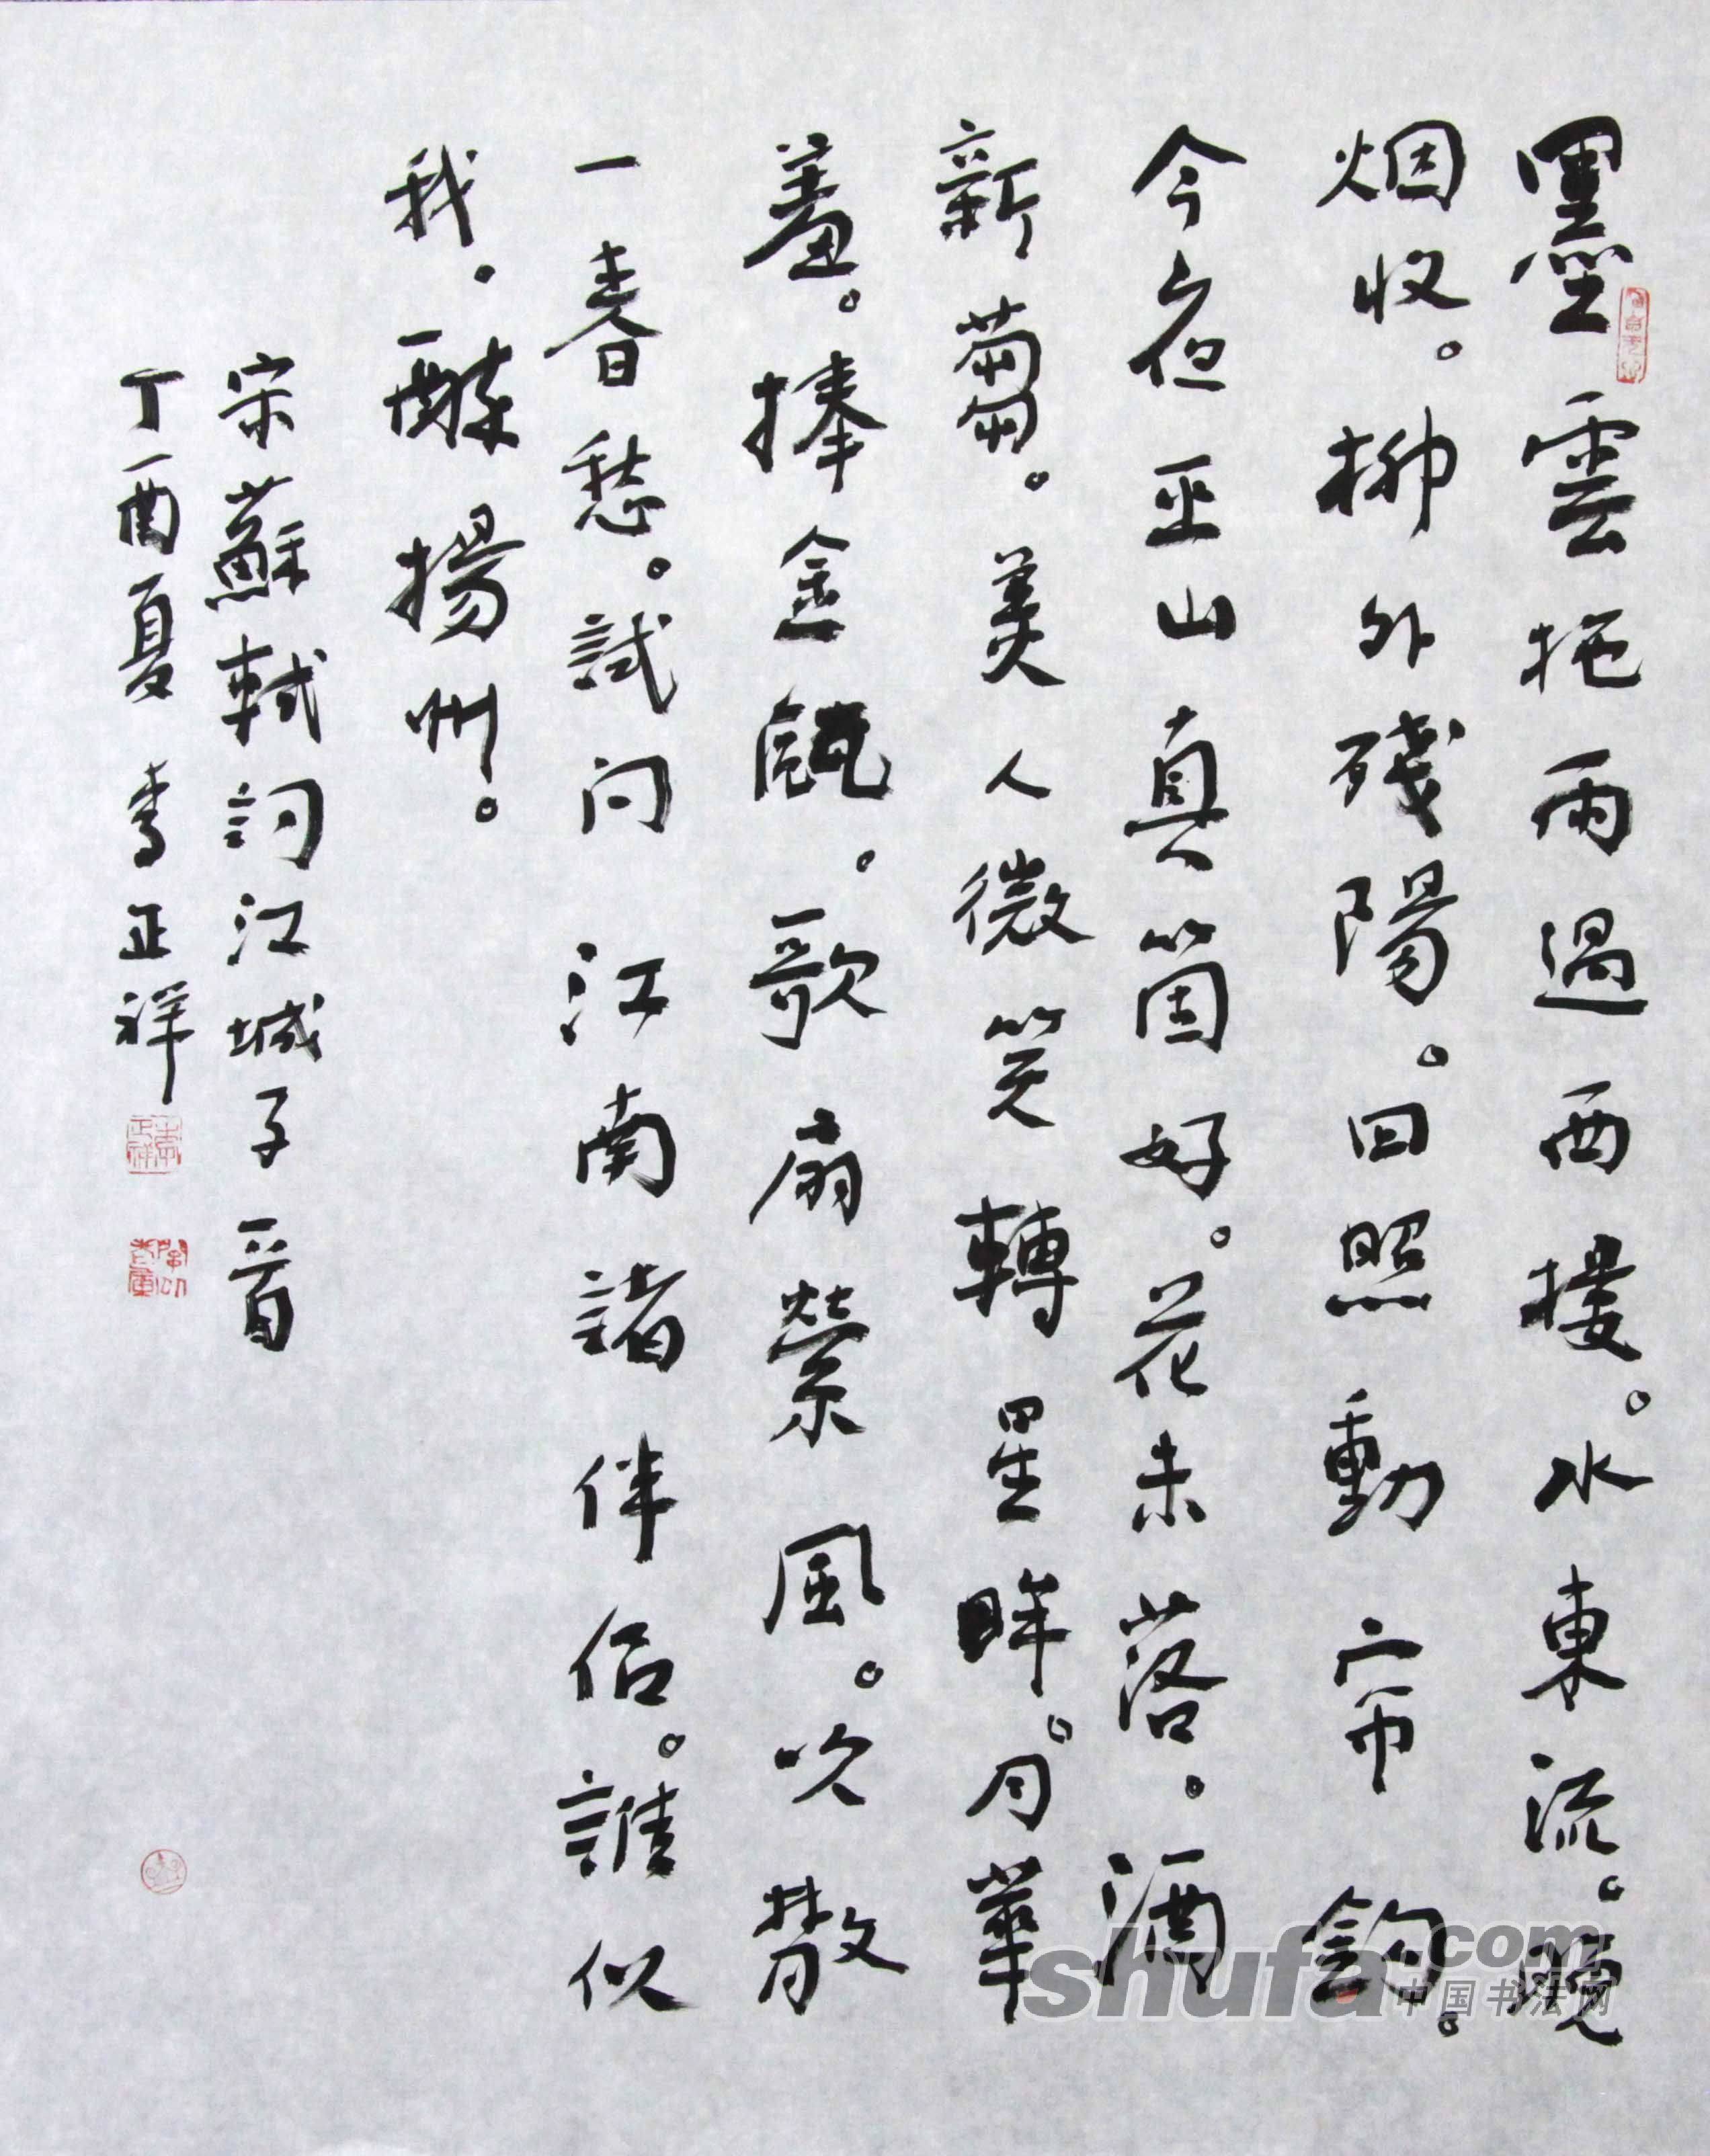 墨雲拖雨過西樓。水東流。晚
烟收。柳外殘陽。回照動帘鈎。
今夜巫山真箇好。花未落。酒
新蒭。美人微笑轉星眸。月華
羞。捧金甌。歌扇縈風。吹散
一春愁。試问江南諸伴侣。誰似
我。醉揚州。
宋蘇軾詞江城子一首
丁酉夏 李正祥
李正祥
shufa.com
中国书法网